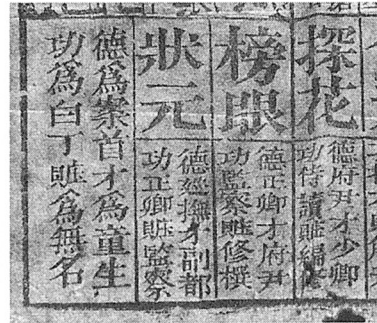 探花
德府尹才少卿
功侍讀賍編
榜眼
德正卿才府尹
功監察賍修撰
狀元
德撫才副都
功正卿賍監察
德爲案首才爲童生
功爲白丁賍爲無名